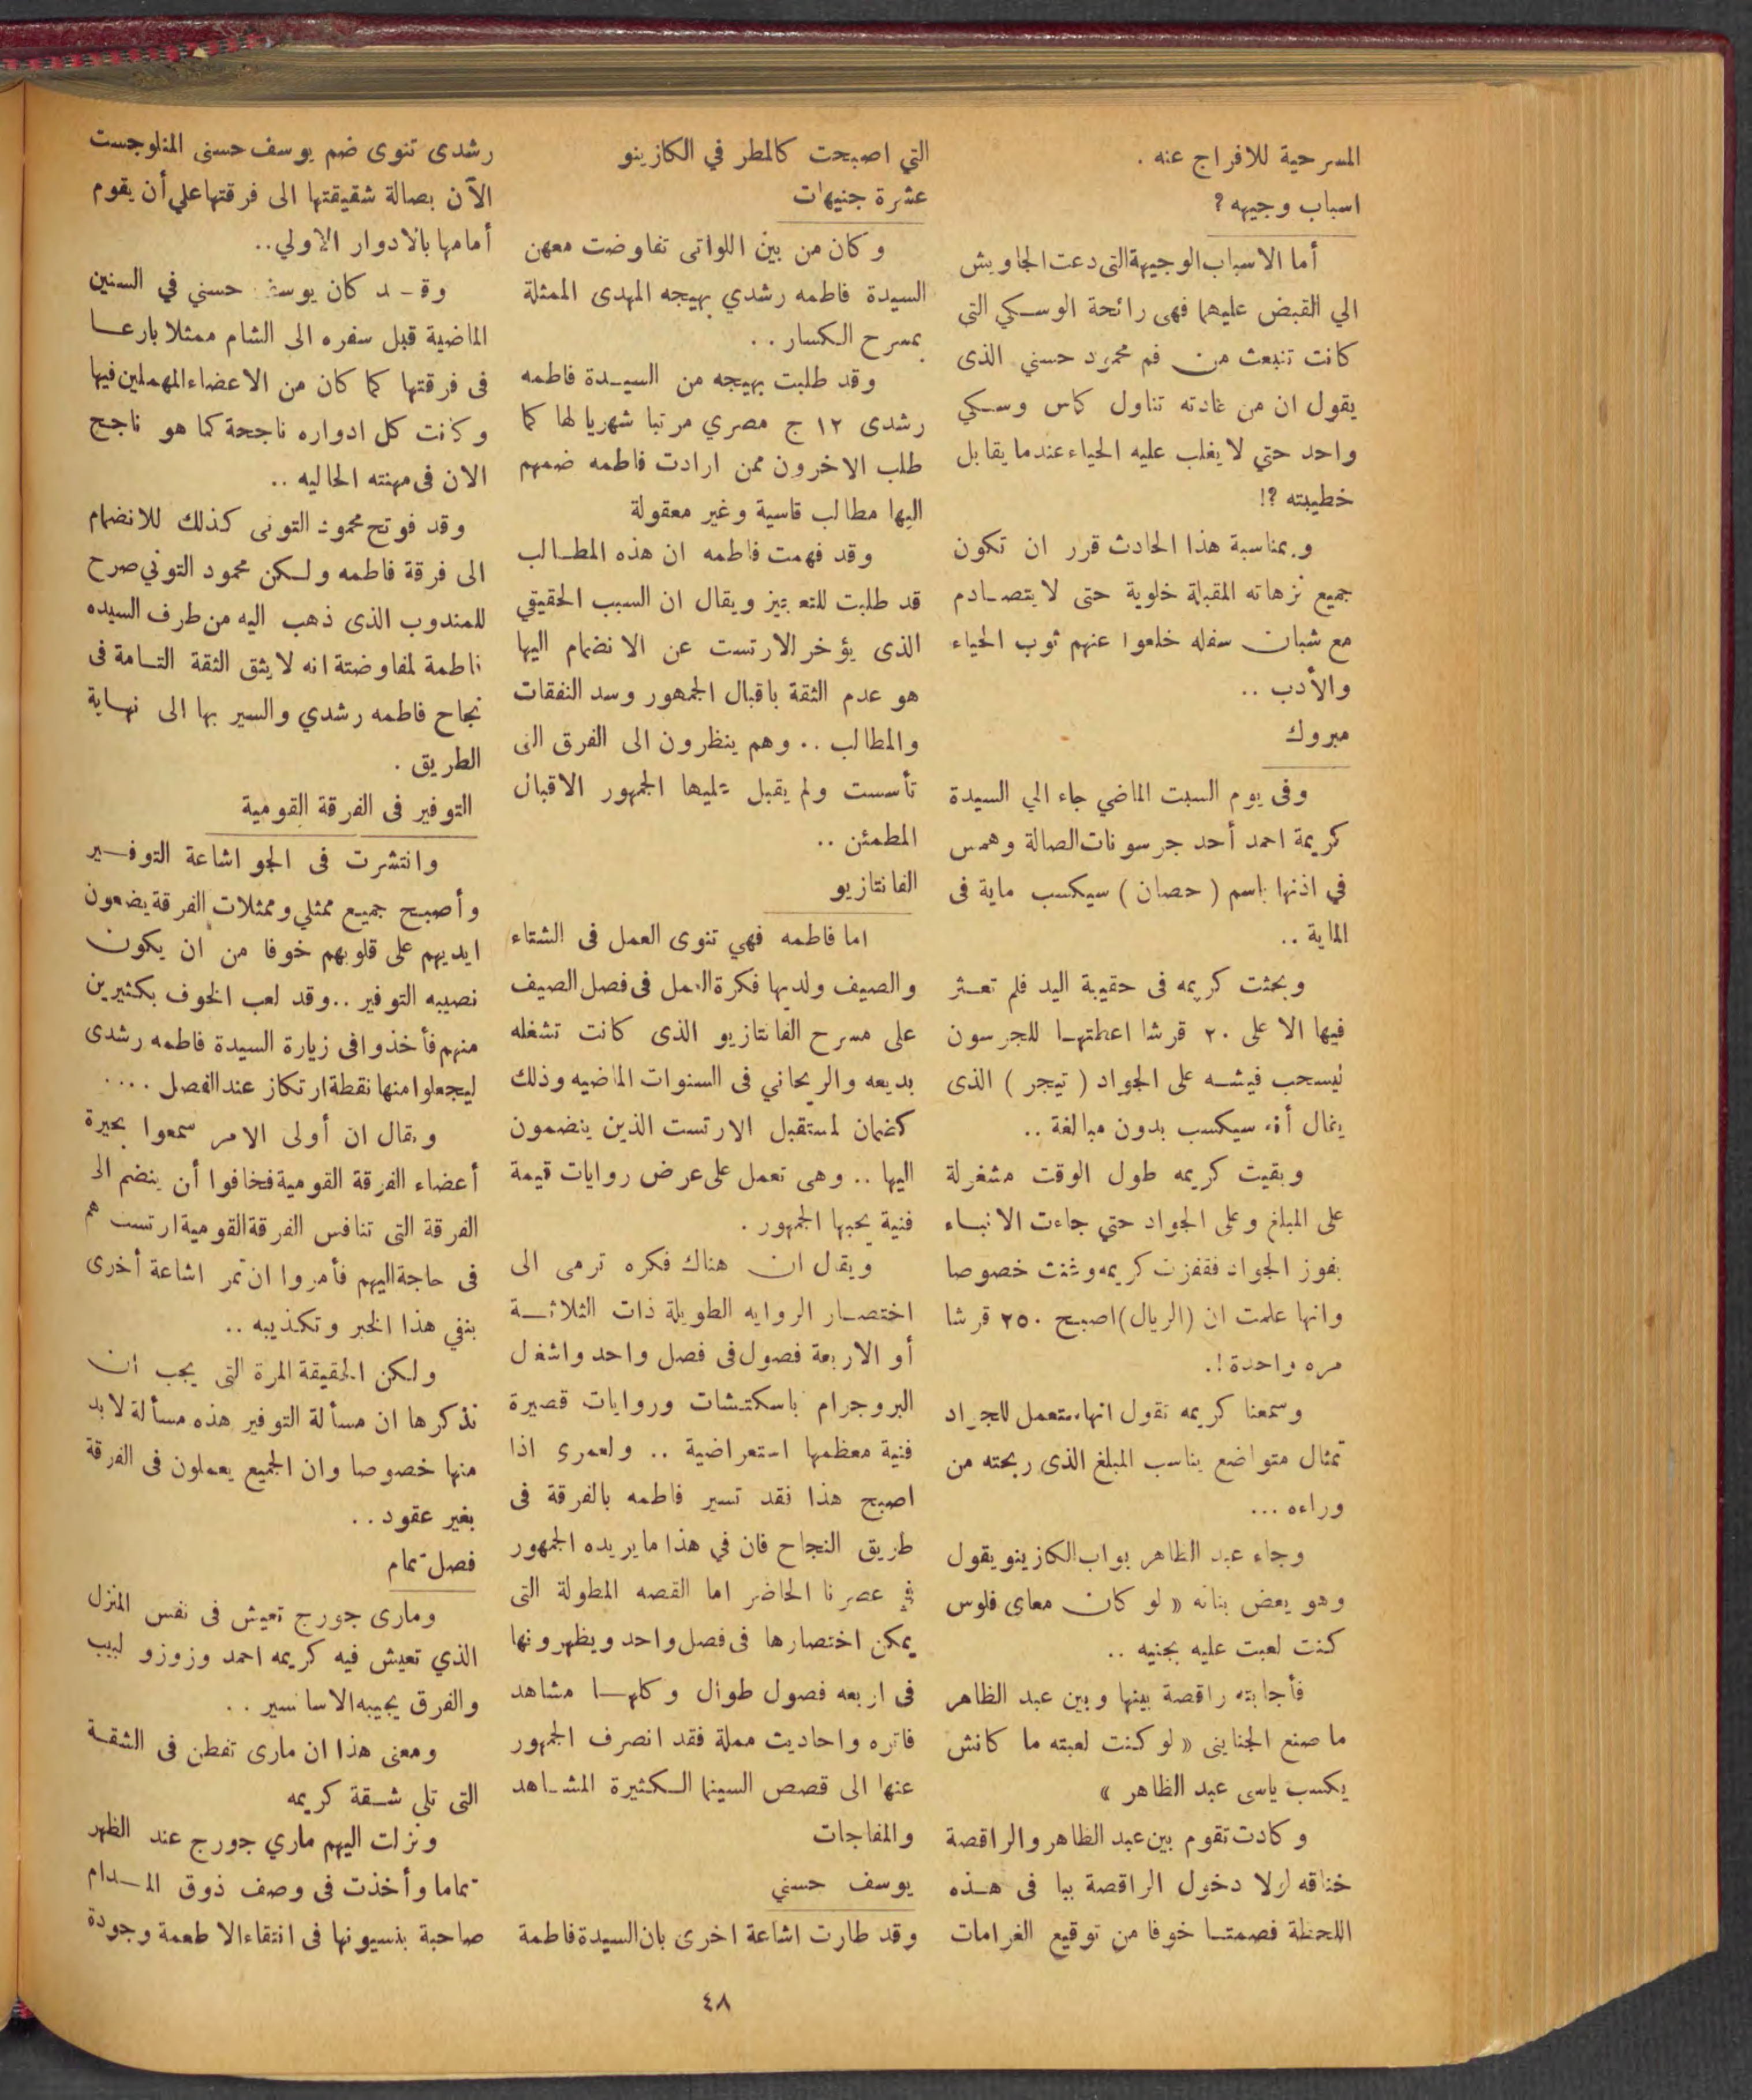 المسرحية للافراج عنه .
اسباب وجيهه ؟
أما الاسباب الوجيهة التى دعت الجاويش
الي القبض عليهما فهى رائحة الوسكي التى
كانت تنبعث من فم محمود حسني الذى
يقول ان من عادته تناول كاس وسكي
واحد حتي لا يغلب عليه الحياء عندما يقابل
خطيبته ؟!
وبمناسبة هذا الحادث قرر ان تكون
جميع نزهاته المقبلة خلوية حتى لا يتصادم
مع شبان سفله خلعوا عنهم ثوب الحياء
والأدب ..
مبروك
وفى يوم السبت الماضي جاء الي السيدة
كريمة احمد أحد جرسونات الصالة وهمس
في اذنها باسم ( حصان ) سيكسب ماية فى
الماية ..
وبحثت كريمه فى حقيبة اليد فلم تعثر
فيها الا على ٢٠ قرشا اعطتها للجرسون
ليسحب فيشه على الجواد ( تيجر ) الذى
يقال أنه سيكسب بدون مبالغة ..
وبقيت كريمه طول الوقت مشغولة
على المبلغ وعلى الجواد حتي جاءت الانباء
بفوز الجواد فقفزت كريمه وغنت خصوصا
وانها علمت ان (الريال) اصبح ٢٥٠ قرشا
مره واحدة !.
وسمعنا كريمه تقول انها ستعمل للجواد
تمثال متواضع يناسب المبلغ الذى ربحته من
وراءه ...
وجاء عبد الظاهر بواب الكازينو يقول
وهو يعض بنانه « لو كان معاى فلوس
كنت لعبت عليه بجنيه ..
فأجابته راقصة بينها وبين عبد الظاهر
ما صنع الجناينى « لو كنت لعبته ما كانش
يكسب ياسى عبد الظاهر »
وكادت تقوم بين عبد الظاهر والراقصة
خناقه لولا دخول الراقصة ببا فى هذه
اللحظة فصمتا خوفا من توقيع الغرامات
التي اصبحت كالمطر في الكازينو
عشرة جنيهات
وكان من بين اللواتى تفاوضت معهن
السيدة فاطمه رشدي بهيجه المهدى الممثلة
بمسرح الكسار ..
وقد طلبت بهيجه من السيدة فاطمه
رشدى ١٢ ج مصري مرتبا شهريا لها كما
طلب الاخرون ممن ارادت فاطمه ضمهم
اليها مطالب قاسية وغير معقولة
وقد فهمت فاطمه ان هذه المطالب
قد طلبت للتعجيز ويقال ان السبب الحقيقي
الذى يؤخر الارتست عن الانضمام اليها
هو عدم الثقة باقبال الجمهور وسد النفقات
والمطالب .. وهم ينظرون الى الفرق التى
تأسست ولم يقبل عليها الجمهور الاقبال
المطمئن ..
الفانتازيو
اما فاطمه فهي تنوى العمل فى الشتاء
والصيف ولديها فكرة العمل فى فصل الصيف
على مسرح الفانتازيو الذى كانت تشغله
بديعه والريحاني فى السنوات الماضيه وذلك
كضمان لمستقبل الارتست الذين ينضمون
اليها .. وهى تعمل على عرض روايات قيمة
فنية يحبها الجمهور .
ويقال ان هناك فكره ترمى الى
اختصار الروايه الطويلة ذات الثلاثة
أو الاربعة فصول فى فصل واحد واشغل
البروجرام باسكتشات وروايات قصيرة
فنية معظمها استعراضية .. ولعمرى اذا
اصبح هذا نقد تسير فاطمه بالفرقة فى
طريق النجاح فان في هذا ما يريده الجمهور
في عصرنا الحاضر اما القصه المطولة التى
يمكن اختصارها فى فصل واحد ويظهرونها
فى اربعه فصول طوال وكلها مشاهد
فاتره واحاديث مملة فقد انصرف الجمهور
عنها الى قصص السينما الكثيرة المشاهد
والمفاجات
يوسف حسني
وقد طارت اشاعة اخرى بان السيدة فاطمة
رشدى تنوى ضم يوسف حسنى المنلوجست
الآن بصالة شقيقتها الى فرقتها علي أن يقوم
أمامها بالادوار الاولي..
وقد كان يوسف حسني في السنين
الماضية قبل سفره الى الشام ممثلا بارعا
فى فرقتها كما كان من الاعضاء المهملين فيها
وكانت كل ادواره ناجحة كما هو ناجح
الان فى مهنته الحاليه ..
وقد فوتح محمود التونى كذلك للانضمام
الى فرقة فاطمه ولكن محمود التوني صرح
للمندوب الذى ذهب اليه من طرف السيده
فاطمة لمفاوضتة انه لا يثق الثقة التامة فى
نجاح فاطمه رشدي والسير بها الى نهاية
الطريق .
التوفير فى الفرقة القومية
وانتشرت فى الجو اشاعة التوفير
وأصبح جميع ممثلي وممثلات الفرقة يضعون
ايديهم على قلوبهم خوفا من ان يكون
نصيبه التوفير .. وقد لعب الخوف بكثيرين
منهم فأخذوا فى زيارة السيدة فاطمه رشدى
ليجعلوا منها نقطة ارتكاز عند الفصل ....
ويقال ان أولى الامر سمعوا بحيرة
أعضاء الفرقة القومية فخافوا أن ينضم الى
الفرقة التى تنافس الفرقة القومية ارتست هم
فى حاجة اليهم فأمروا ان تمر اشاعة أخرى
بنفي هذا الخبر وتكذيبه ..
ولكن الحقيقة المرة التى يجب ان
نذكرها ان مسألة التوفير هذه مسألة لابد
منها خصوصا وان الجميع يعملون فى الفرقة
بغير عقود ..
فصل تمام
ومارى جورج تعيش فى نفس المنزل
الذي تعيش فيه كريمه احمد وزوزو لبيب
والفرق يجيبه الاسانسير ..
ومعنى هذا ان مارى تقطن فى الشقة
التى تلى شقة كريمه
ونزلت اليهم ماري جورج عند الظهر
تماما وأخذت فى وصف ذوق المدام
صاحبة بنسيونها فى انتقاء الاطعمة وجودة
٤٨